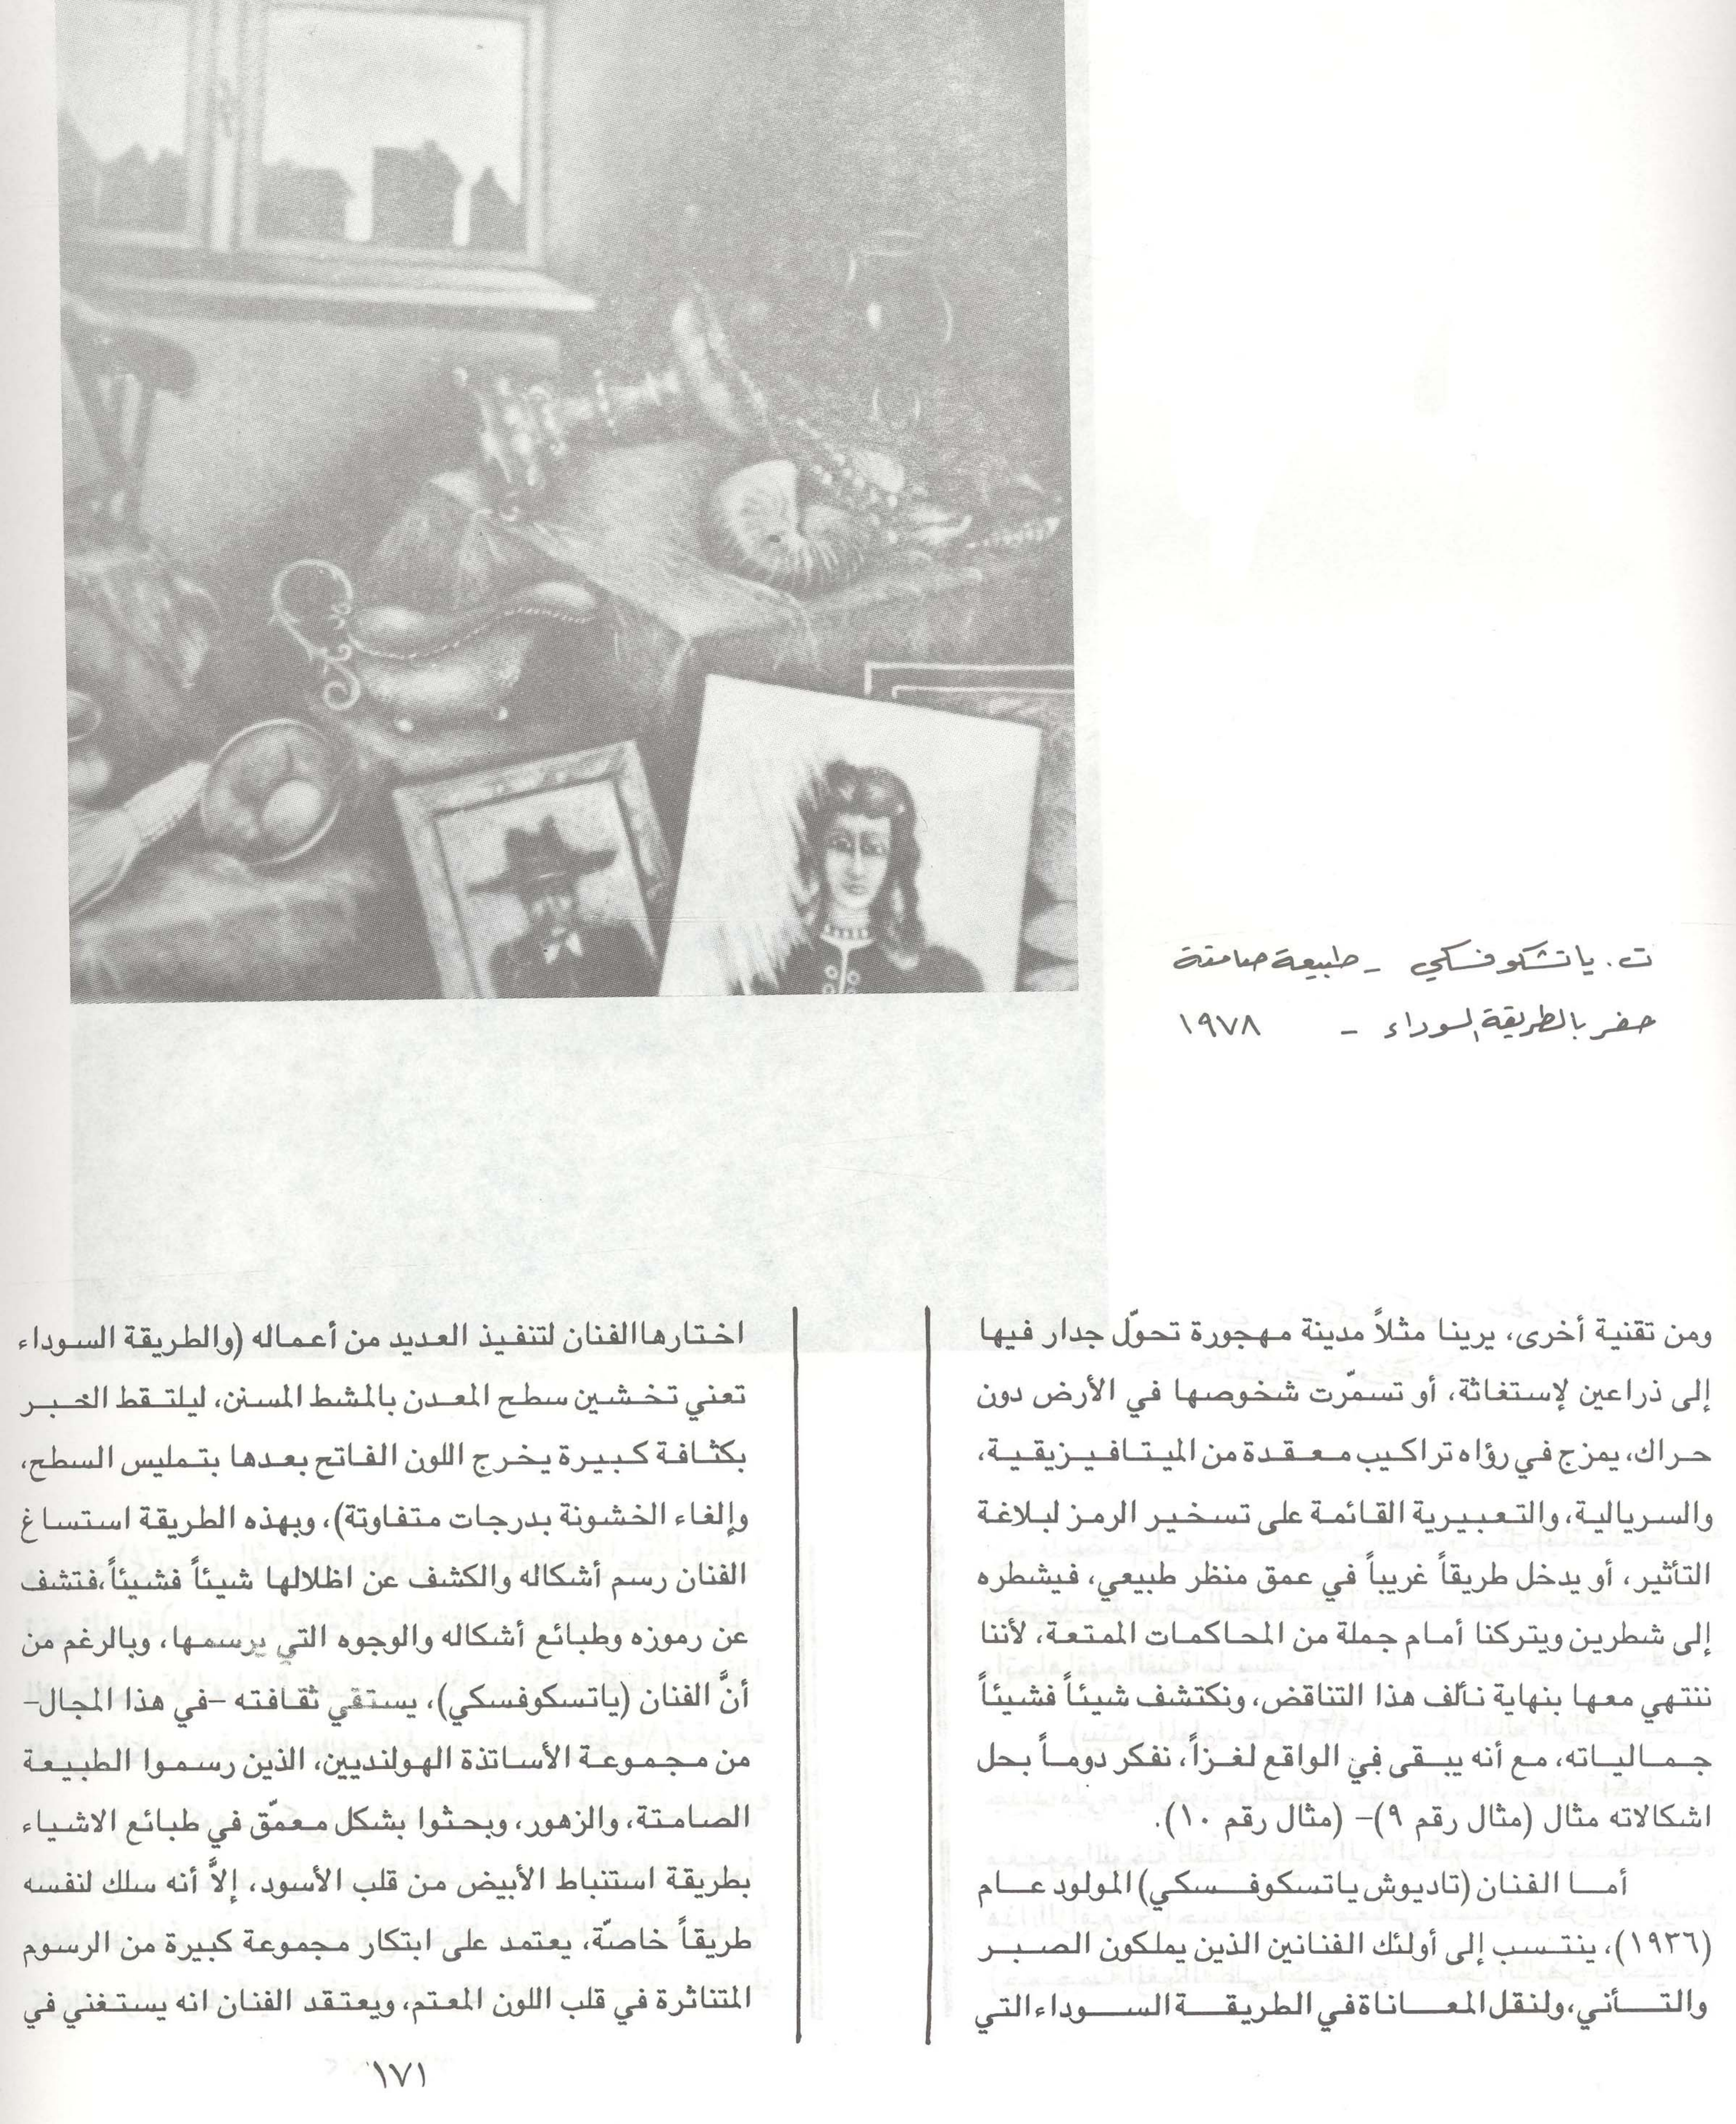 ت. ياتشكوفسكي - طبيعة صامتة
حفر بالطريقة السوداء - ١٩٧٨
ومن تقنية أخرى، يرينا مثلاً مدينة مهجورة تحوّل جدار فيها
إلى ذراعين لإستغاثة، أو تسمّرت شخوصها في الأرض دون
حراك، يمزج في رؤاه تراكيب معقدة من الميتافيزيقية،
والسريالية، والتعبيرية القائمة على تسخير الرمز لبلاغة
التأثير، أو يدخل طريقاً غريباً في عمق منظر طبيعي، فيشطره
إلى شطرين ويتركنا أمام جملة من المحاكمات الممتعة، لأننا
ننتهي معها بنهاية نألف هذا التناقض، ونكتشف شيئاً فشيئاً
جمالياته، مع أنه يبقى في الواقع لغزاً، نفكر دوماً بحل
اشكالاته مثال (مثال رقم ٩)- (مثال رقم ١٠).
أما الفنان (تاديوش ياتسكوفسكي) المولود عام
(١٩٣٦)، ينتسب إلى أولئك الفنانين الذين يملكون الصبر
والتأني، ولنقل المعاناة في الطريقة السوداء التي
اختارها الفنان لتنفيذ العديد من أعماله (والطريقة السوداء
تعني تخشين سطح المعدن بالمشط المسنن، ليلتقط الخبر
بكثافة كبيرة يخرج اللون الفاتح بعدها بتمليس السطح،
وإلغاء الخشونة بدرجات متفاوتة)، وبهذه الطريقة استساغ
الفنان رسم أشكاله والكشف عن اظلالها شيئاً فشيئاً، فتشف
عن رموزه وطبائع أشكاله والوجوه التي يرسمها، وبالرغم من
أنَّ الفنان (ياتسكوفسكي)، يستقي ثقافته -في هذا المجال-
من مجموعة الأساتذة الهولنديين، الذين رسموا الطبيعة
الصامتة، والزهور، وبحثوا بشكل معمّق في طبائع الاشياء
بطريقة استنباط الأبيض من قلب الأسود، إلاَّ أنه سلك لنفسه
طريقاً خاصّة، يعتمد على ابتكار مجموعة كبيرة من الرسوم
المتناثرة في قلب اللون المعتم، ويعتقد الفنان انه يستغني في
١٧١